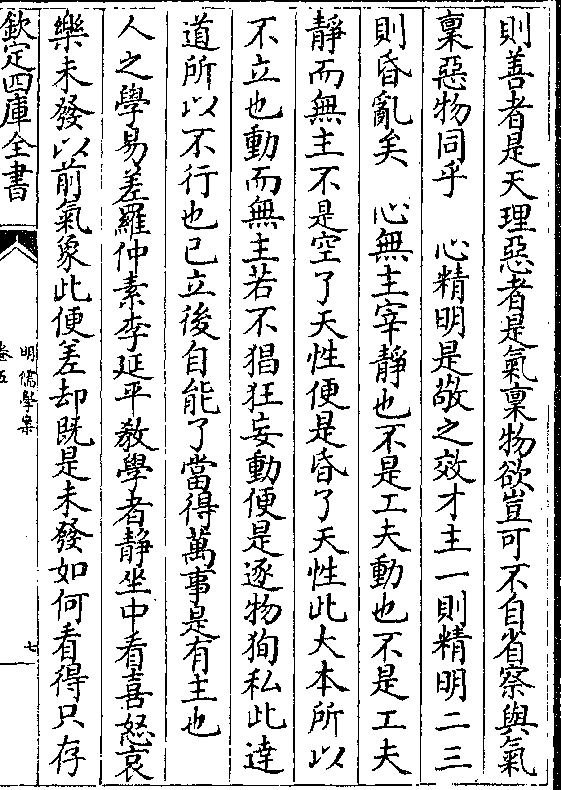 則善者是天理惡者是氣稟物欲豈可不自省察與氣
稟惡物同乎　心精明是敬之效才主一則精明二三
則昏亂矣　心無主宰静也不是工夫動也不是工夫
静而無主不是空了天性便是昏了天性此大本所以
不立也動而無主若不猖狂妄動便是逐物狥私此逹
道所以不行也已立後自能了當得萬事是有主也
人之學易差羅仲素李延平教學者静坐中看喜怒哀
樂未發以前氣象此便差却既是未發如何看得只存
欽定四庫全書
明儒學案
卷五
七